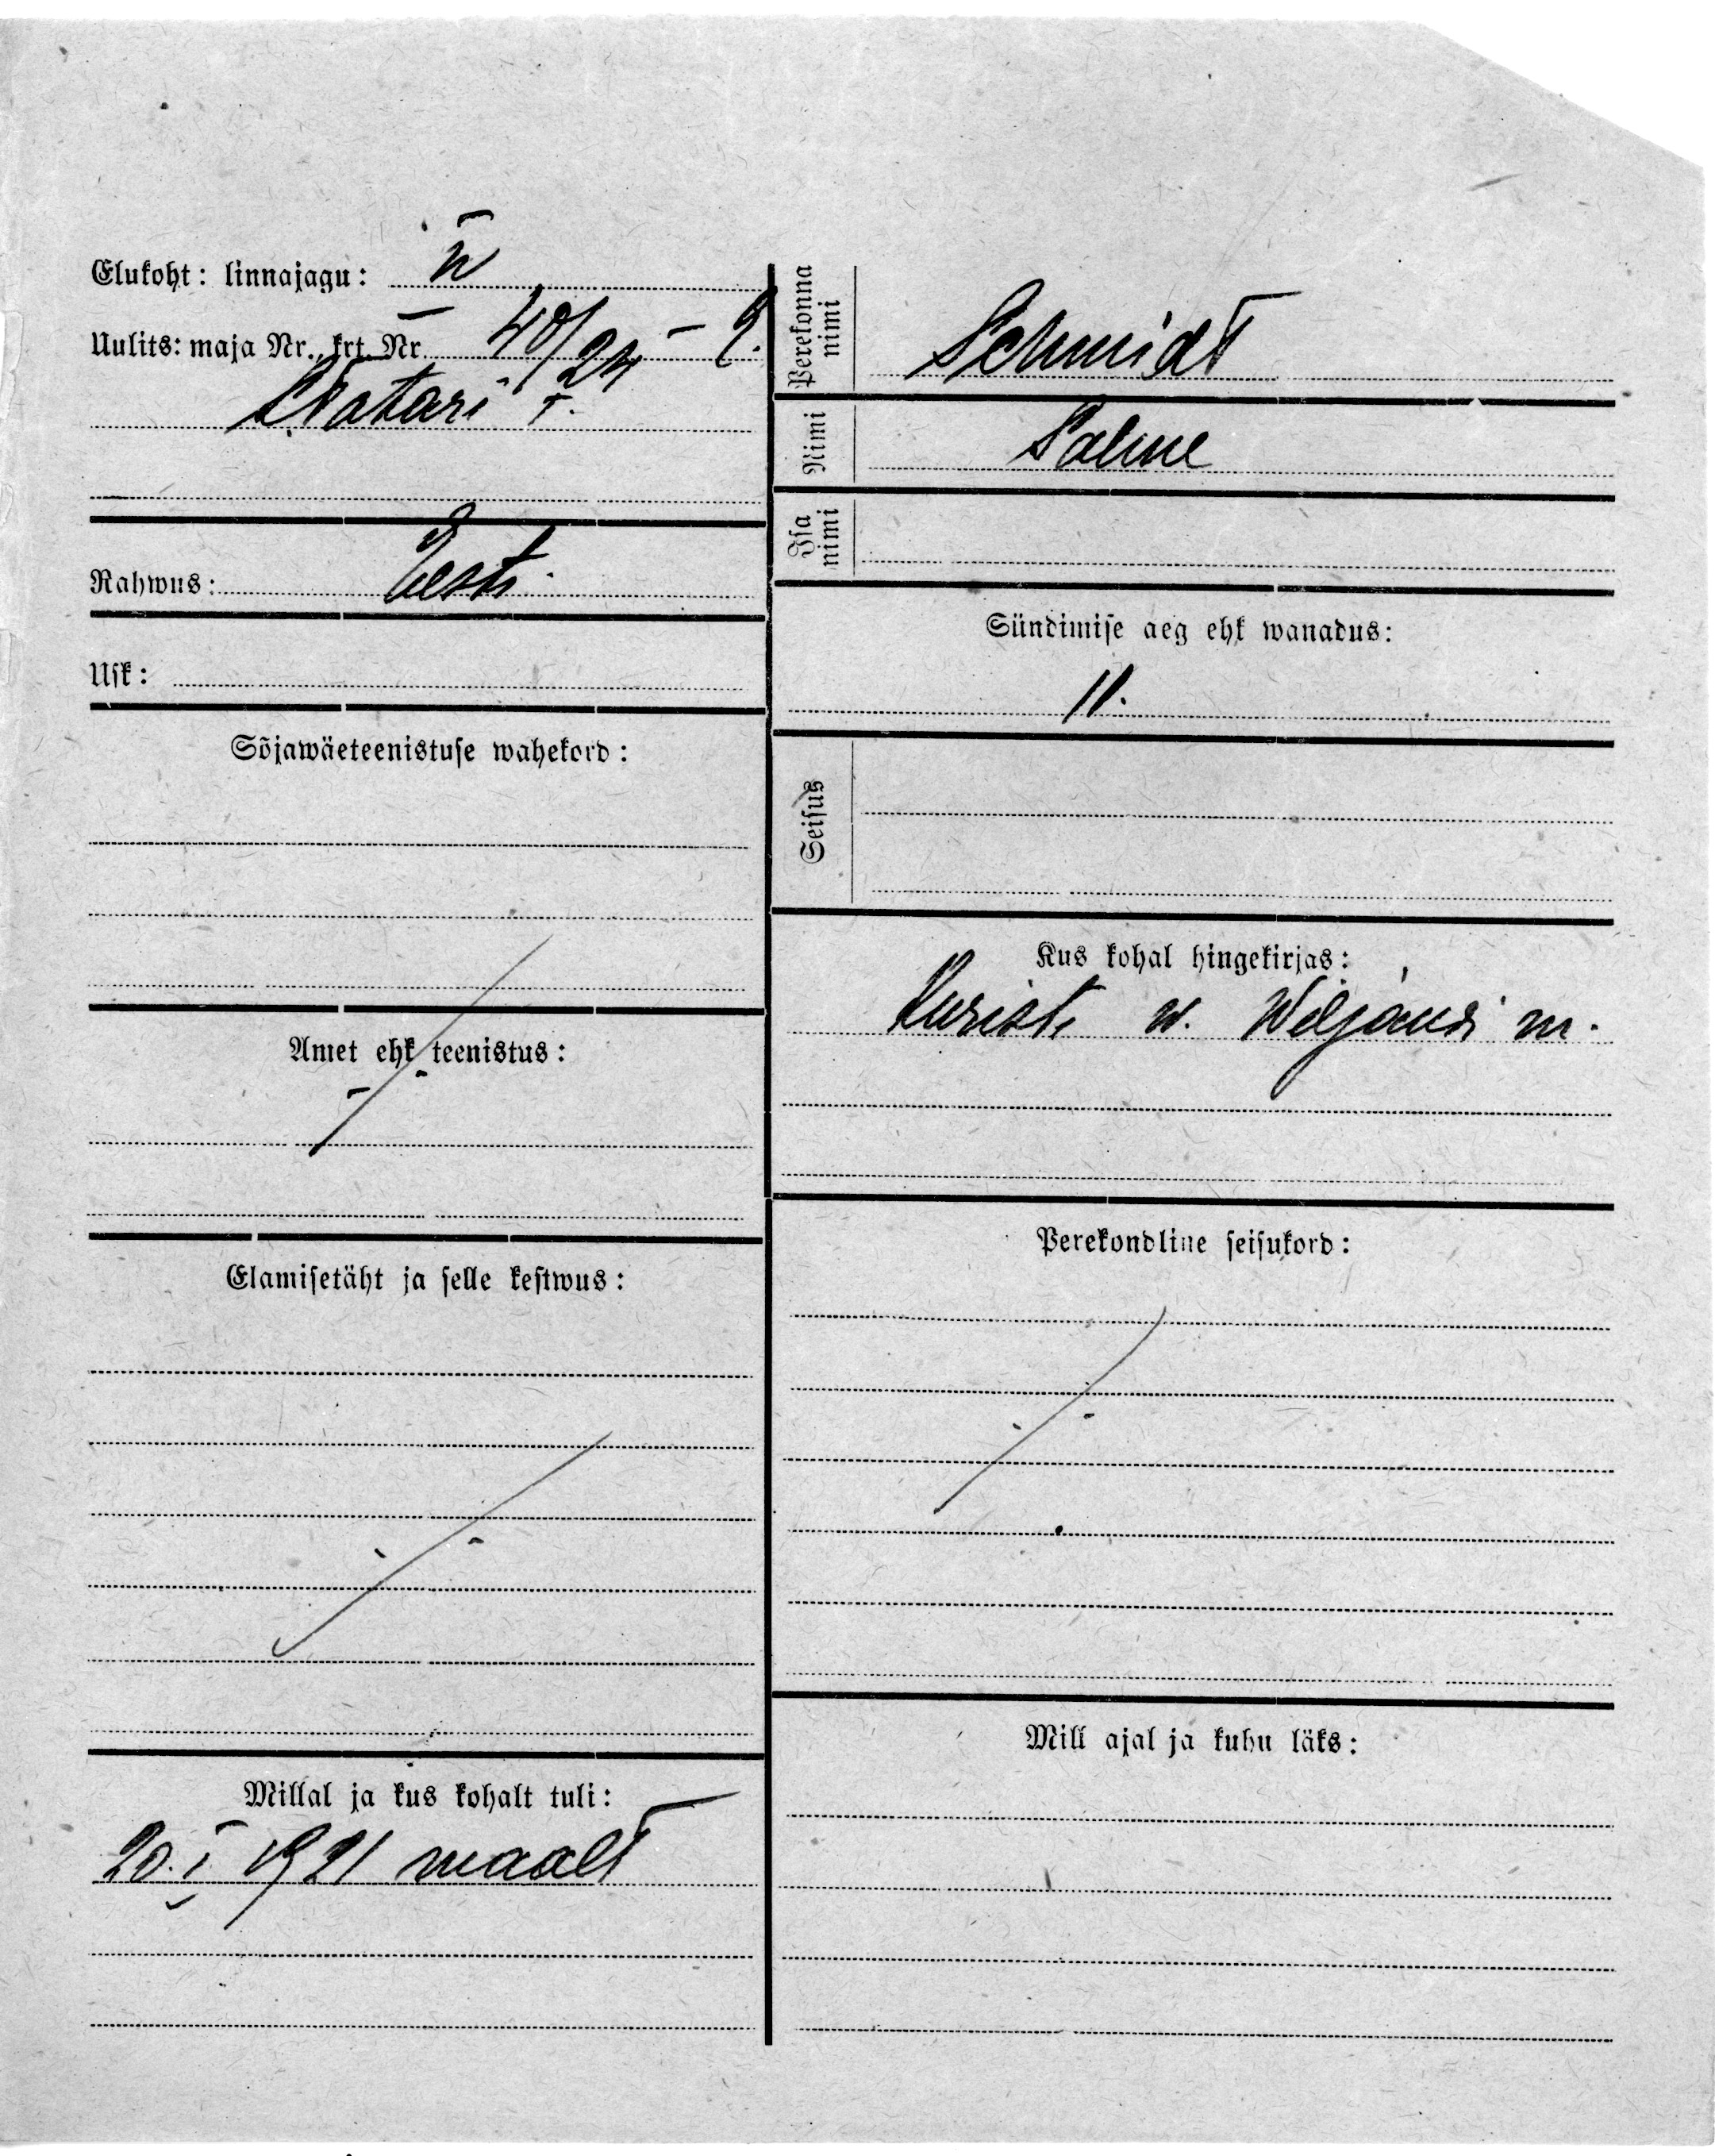 Elukoht: linnajagu: IV
Uulits: maja Nr., krt. Nr 40/24 – 2.
Tatari t.
Rahwus: Eesti
Usk:
Sõjawäeteenistuse wahekord:
Amet ehk teenistus:
Elamisetäht ja selle kestwus:
Millal ja kus kohalt tuli:
20. I 1921 maalt
Perekonna nimi Schmidt
Nimi Salme
Isa nimi
Sündimise aeg ehk wanadus:
11.
Seisus
Kus kohal hingekirjas:
Kuriste w. Wiljandi m.
Perekondline seisukord:
Mill ajal ja kuhu läks: